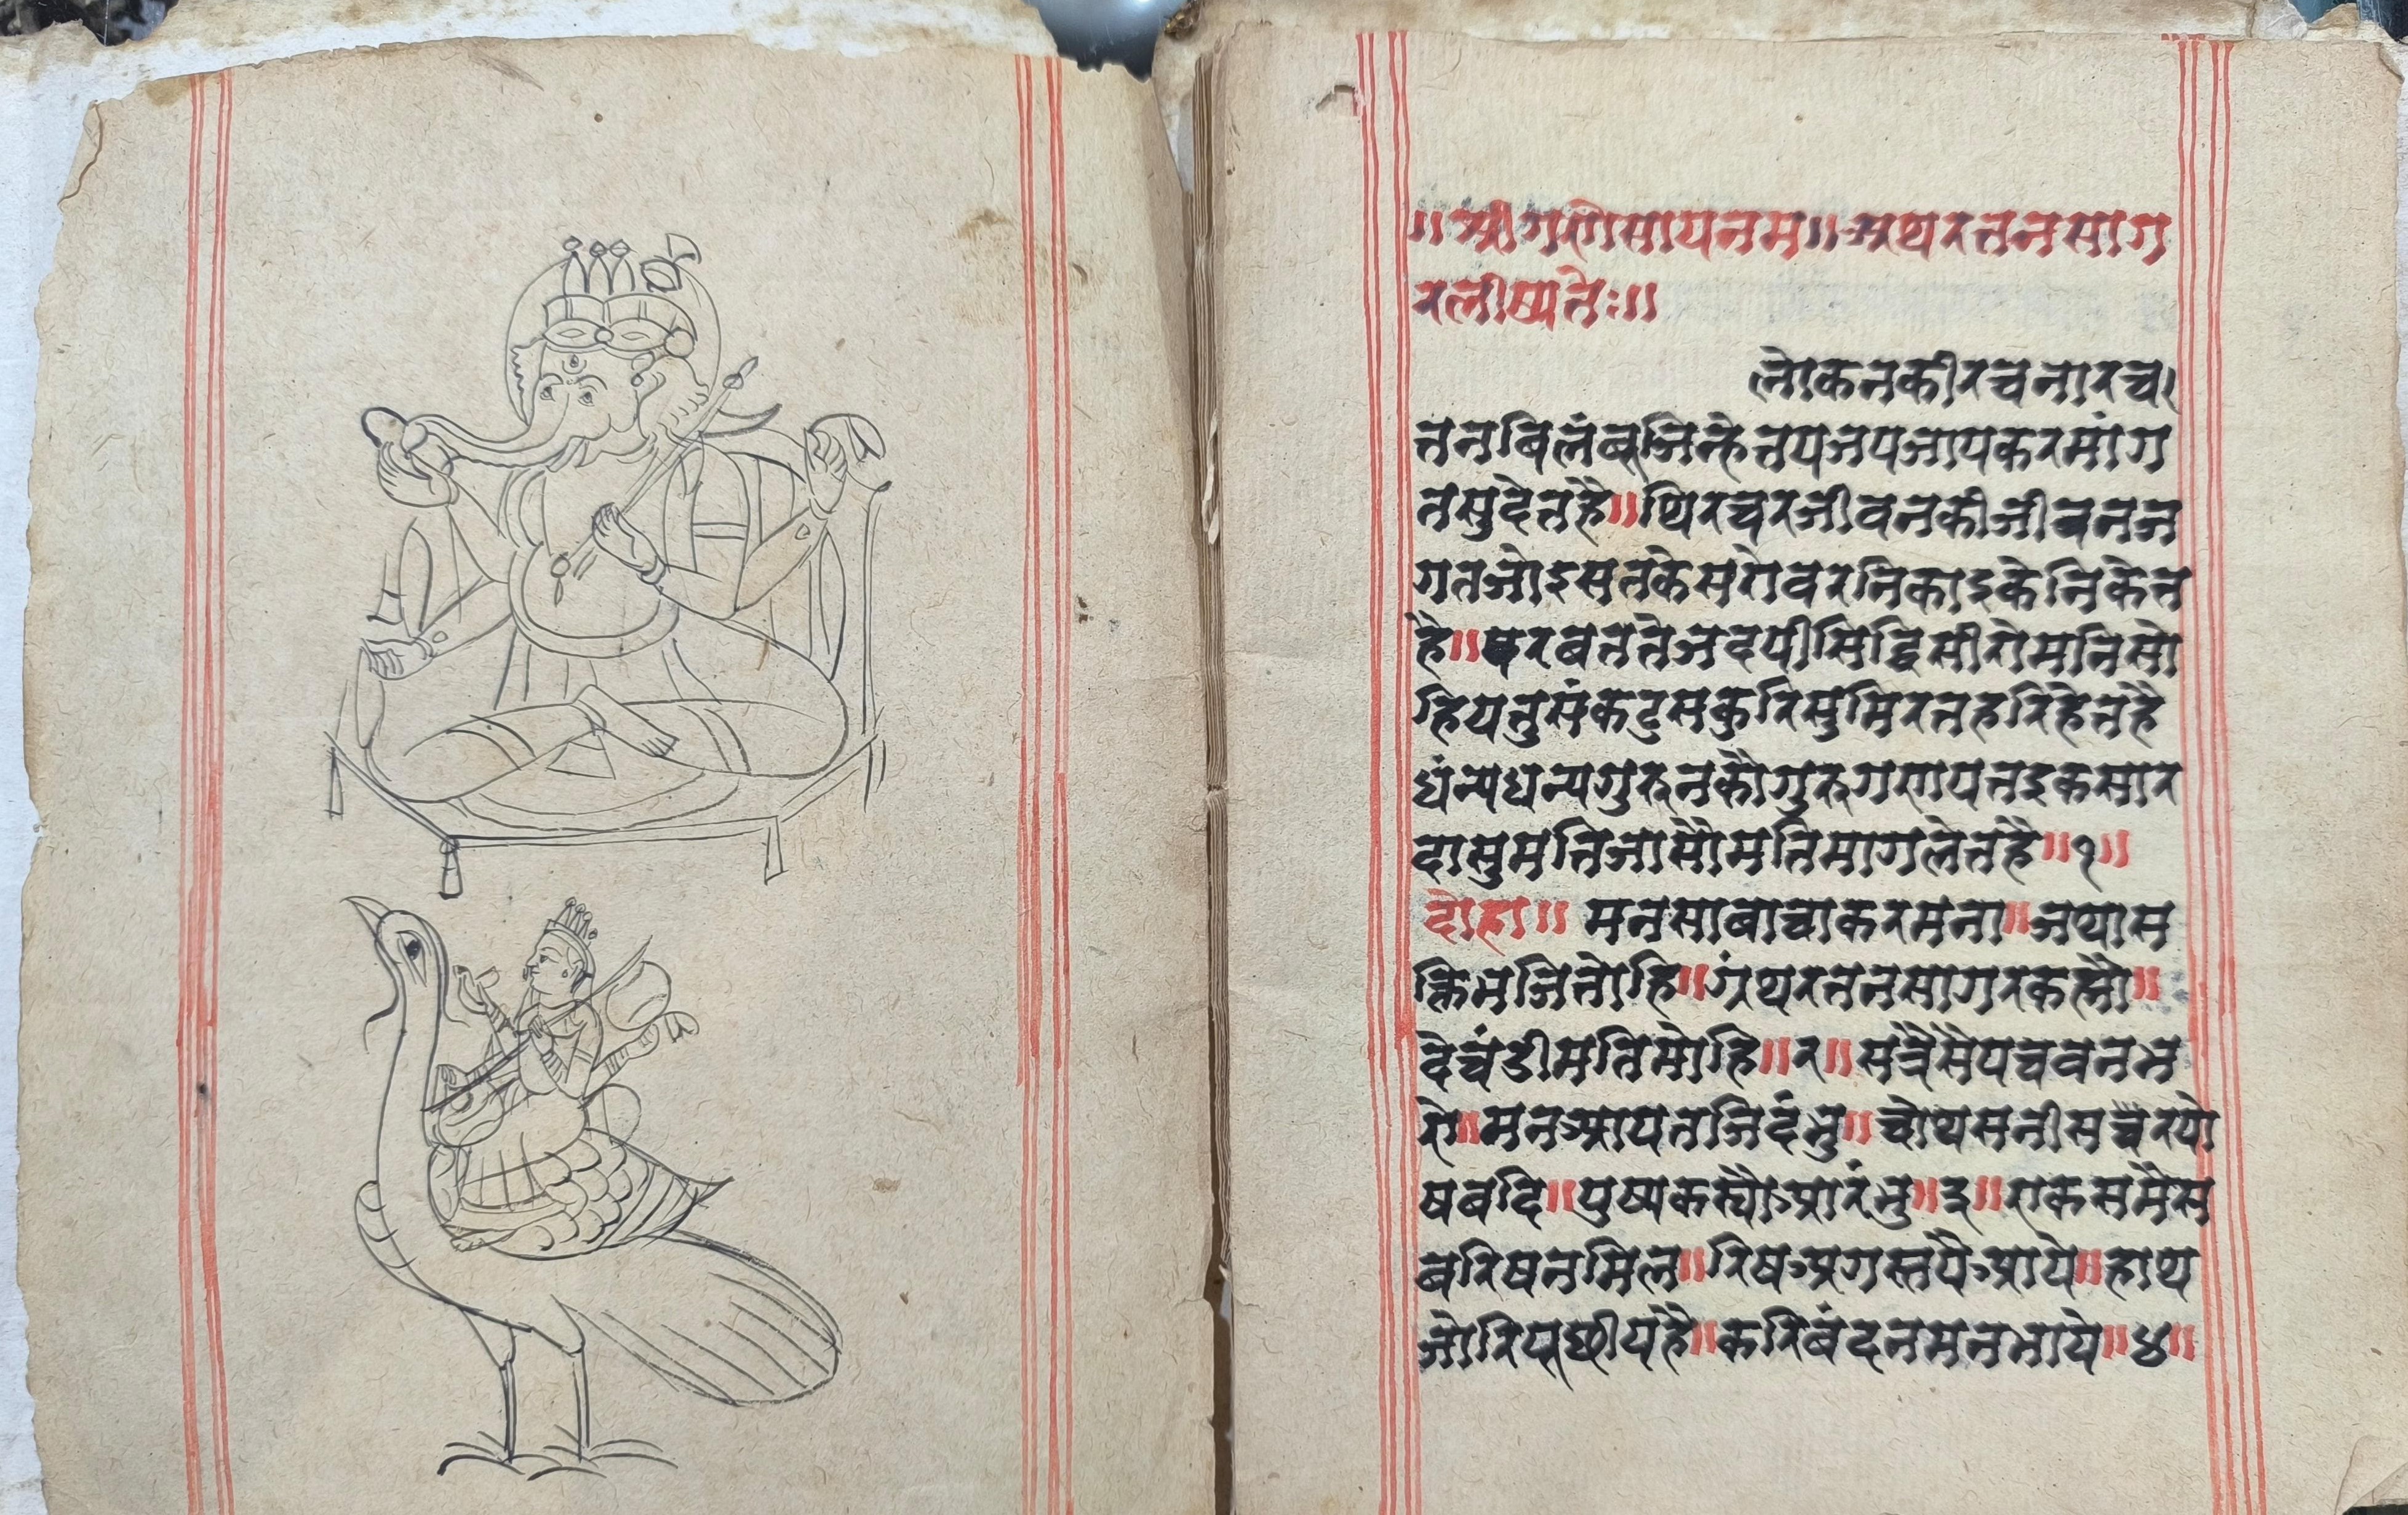 ॥श्रीगणेसायनम॥अथरतनसाग
रलीष्यतेः॥
लोकनकीरचनारच।
तनबिलंबूजिन्हैतपजपजापकरमांग
तसुदेतहै॥थिरचरजीवनकीजीवनज
गतजोइसतकेसरोवरनिकाइकेनिकेत
है॥परबततेजदपीसिद्धिसीरोमनिसो
हियनुसंकटुसकुरिसुमिरतहरिहेतहै
धंन्यधन्यगुरुनकौगुरुगणपतइकसार
दासुमतिजासौमतिमागलेतहै॥१॥
दोहा॥ मनसाबाचाकरमना॥जथास
क्तिभजितोहि॥ग्रंथरतनसागरकह्मौ॥
देचंडीमतिमोहि॥२॥सत्रैसैपचवनभ
रो॥मनआपतजिदंभु॥चोथसनीसचरपो
षबदि॥पुष्यकस्यौप्रारंभु॥३॥एकसमैस
बरिषनमिल॥रिषअगस्तपैआये॥हाथ
जोरिपूछीयहै॥करिबंदनमनभाये॥४॥